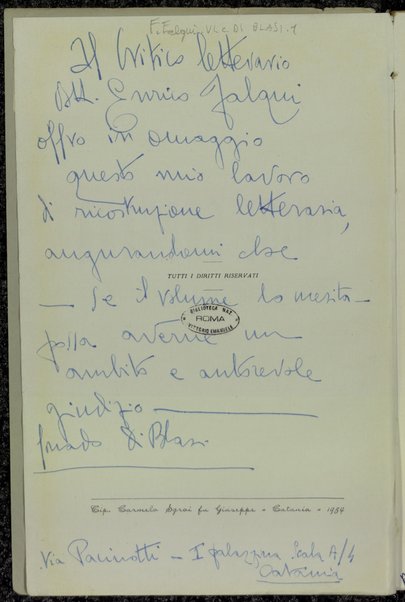 F. Falqui. VI. c. DI BLASI. 1
Al Critico letterario
Dott. Enrico Falqui
offro in omaggio
questo mio lavoro
di ricostruzione letteraria,
augurandomi che
TUTTI I DIRITTI RISERVATI
— se il volume lo merita —
BIBLIOTECA NAZ.
ROMA
VITTORIO EMANUELE
possa averne un
ambito e autorevole
giudizio —
Di Blasi
Tip. Carmelo Sgroi fu Giuseppe - Catania - 1954
Via Pacinotti - I palazzina Scala A/4
Catania